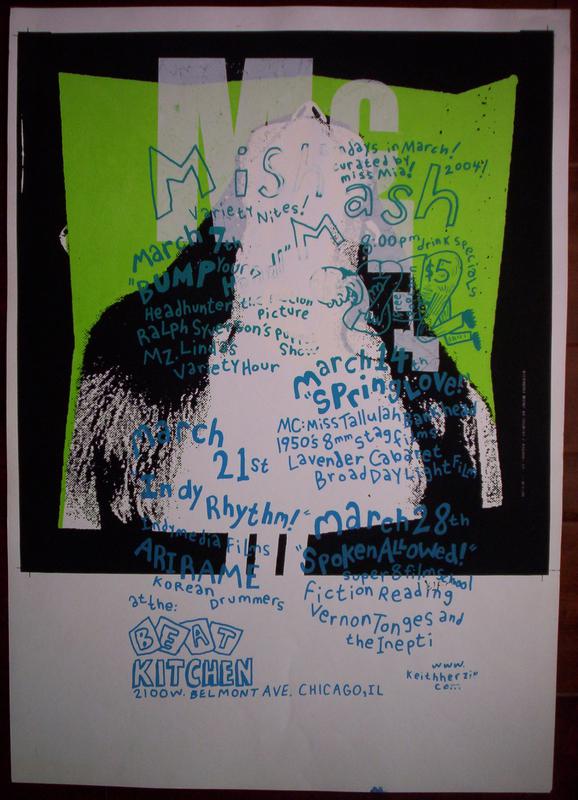 Ms
Mish Mash
Variety Nites!
ndays in March!
curated by
miss Mia! 2004!
8:00pm
drink specials
$5
March 7th
"BUMP Your
Headhunter the
Picture
Ralph Sy
Mz. Linda's
Show
Variety Hour
march 14th
"Spring Love!"
MC: Miss Tallulah Bankhead
1950's 8mm stag films
Lavender Cabaret
Broad DayLight Film
March
21st
"Indy Rhythm!"
Indymedia Films
ARIRAME
Korean
Drummers
march 28th
"Spoken Allowed!"
super 8 film school
Fiction Reading
Vernon Tonges and
the Inepti
at the:
BEAT
KITCHEN
2100 W. BELMONT AVE. CHICAGO, IL
www.
keithherzi
co